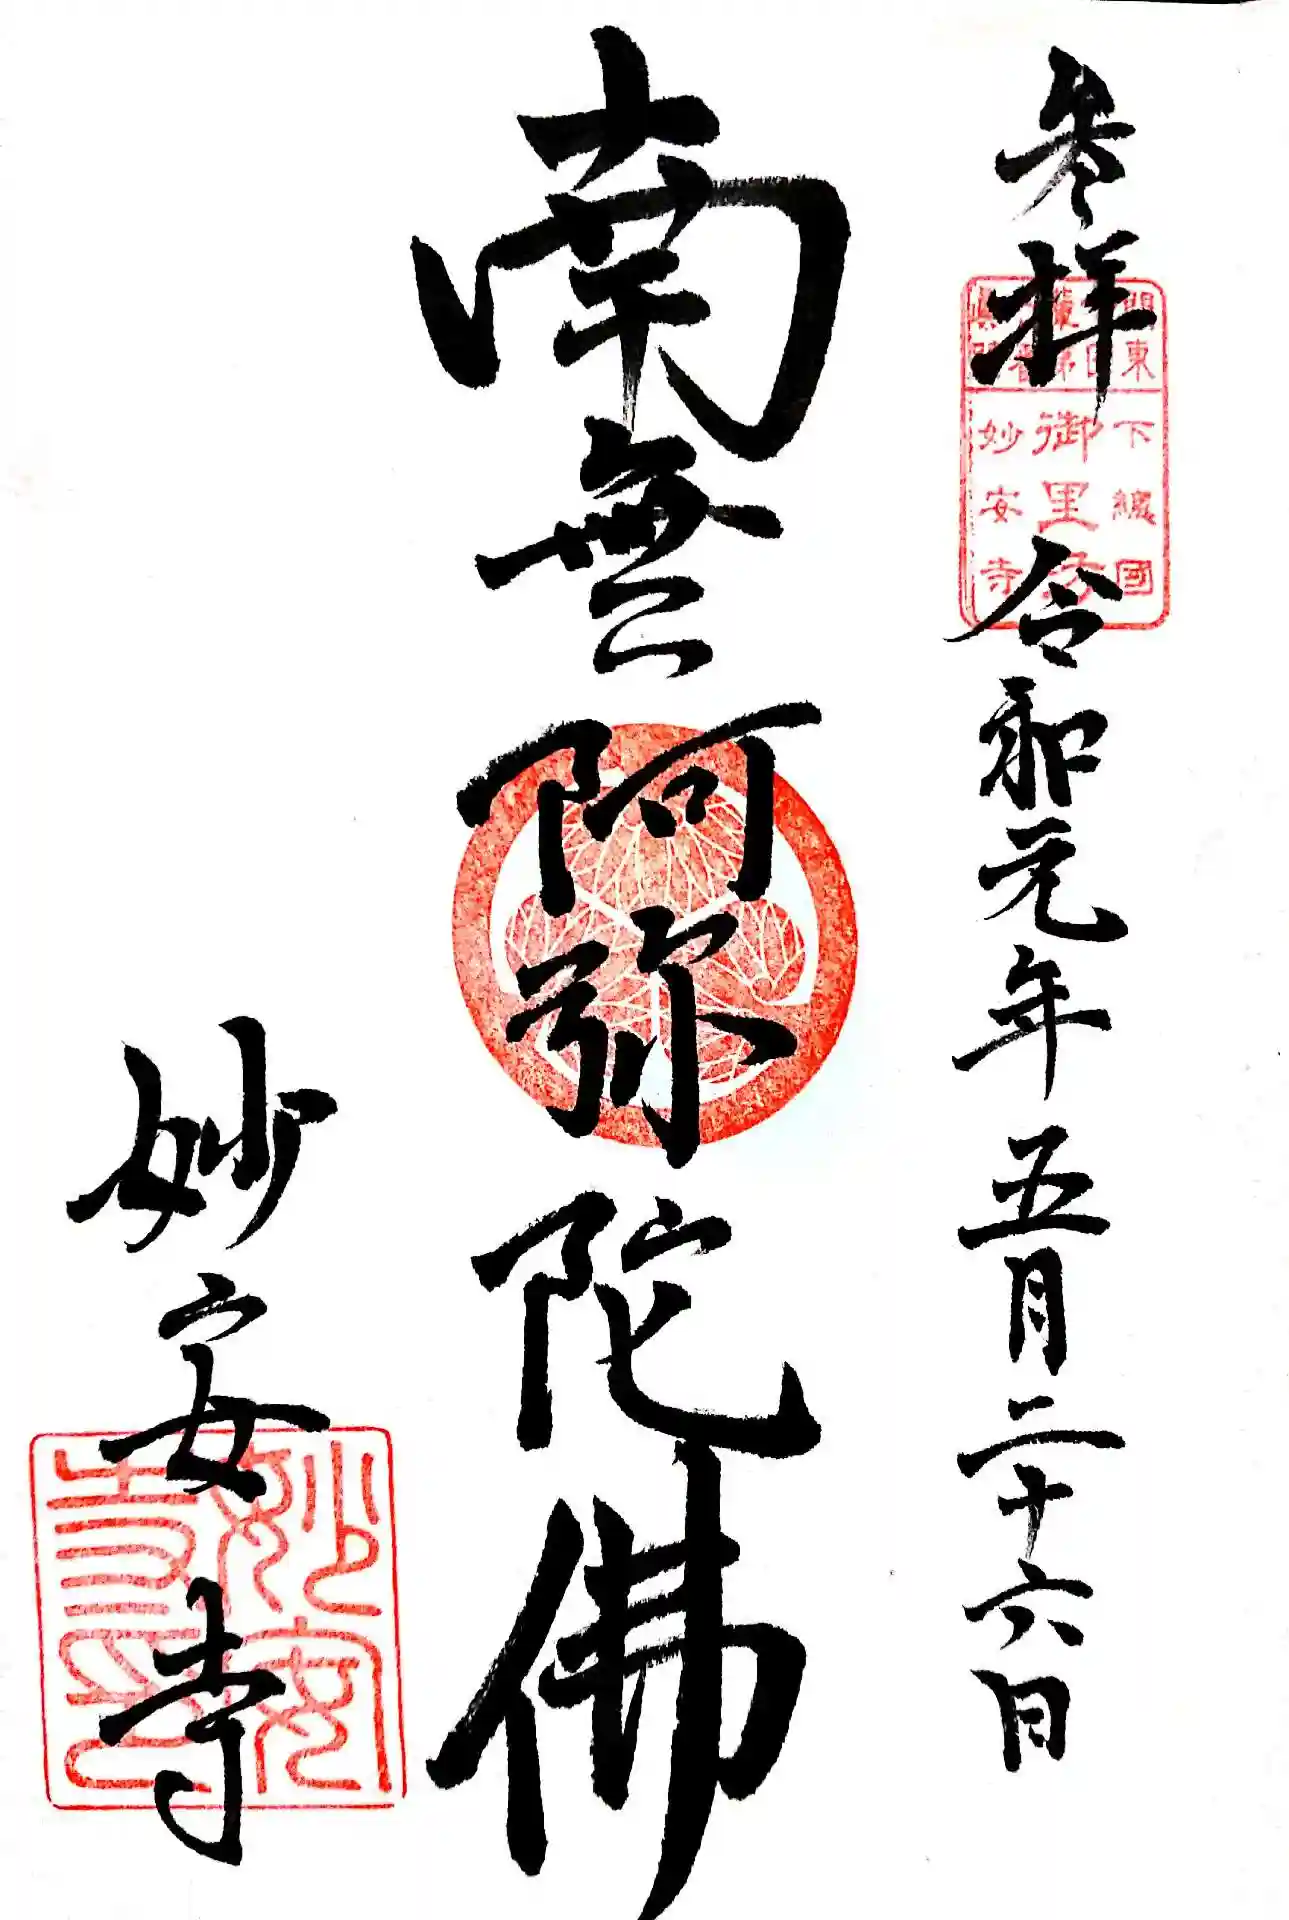 参拝 令和元年 五月二十六日
下總國
御里坊
妙安寺
南無阿弥陀佛
妙安寺
妙安寺印